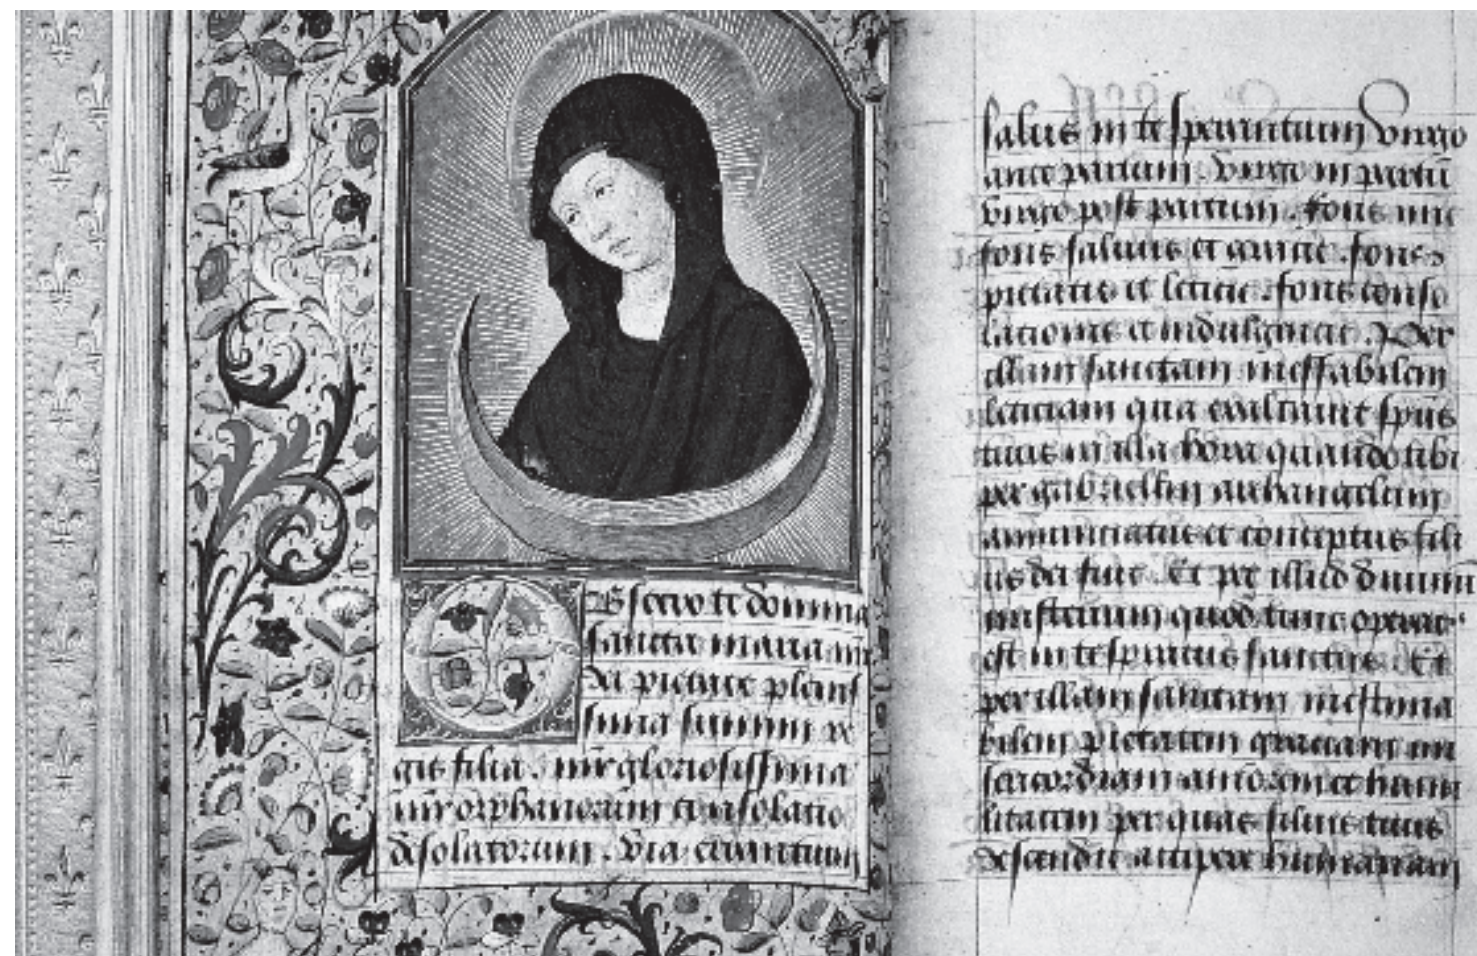 Obsecro te domina
sancta maria m̄r
dei pietate plenis
sima summi re
gis filia . mr̄ gloriosissima
mr̄ orphanorum consolatio
desolatorum . Via errantium
salus in te sperantium Virgo
ante partum . Virgo in partu
virgo post partum . fons mi͞e
fons salutis et gratie . fons
pietatis et leticie . fons conso
lationis et indulgentie . Per
illam sanctam ineffabilem
leticiam qua exultauit sp̄us
tuus in illa hora quando tibi
per gabrielem archangelum
annunciatus et conceptus fili
us dei fuit . Et per illud diuinum
misterium quod tunc operatus
est in te spiritus sanctus . Et
per illam sanctam inestima
bilem pietatem gratiam mi
sericordiam amorem et humi
litatem per quas filius tuus
descendit accipere humanam